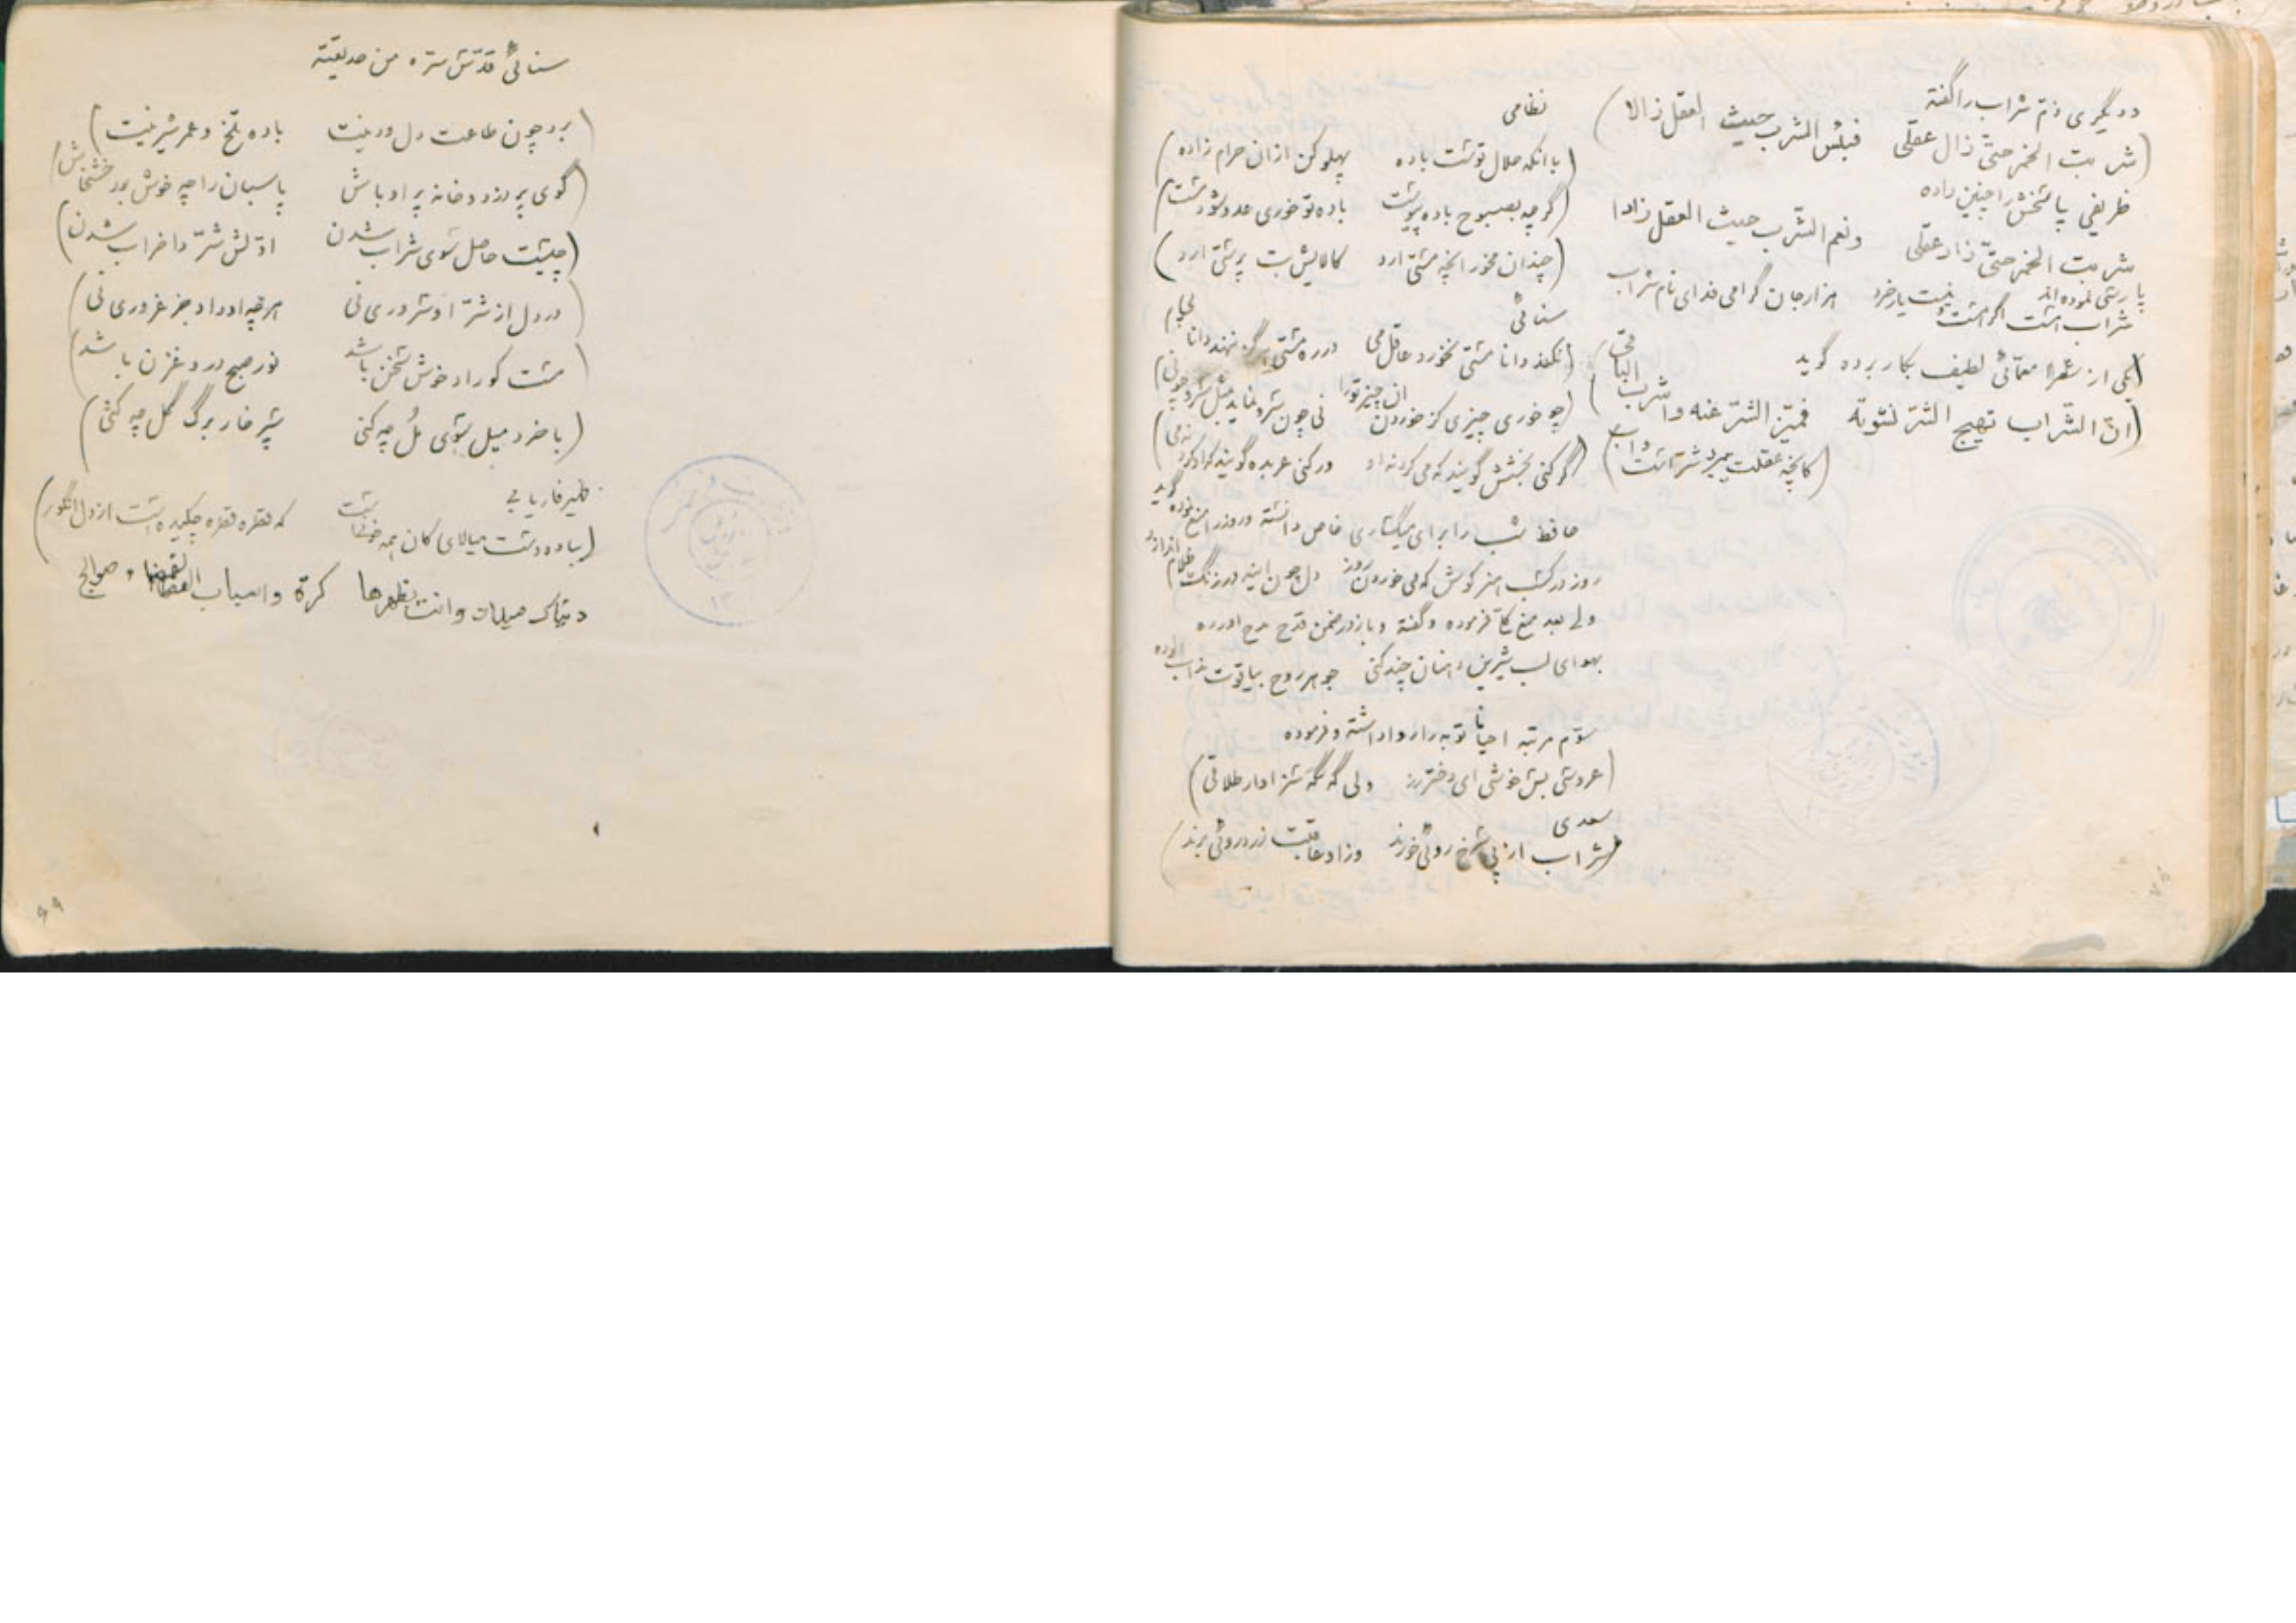 و دیگری ذم شراب را گفته
(شربت الخمر حتی ذال عقلی فبئس الشرب حیث العقل ذالا)
ظریفی پاسخش را چنین داده
شربت الخمر حتی زاد عقلی ونعم الشرب حیث العقل زادا
پارسی نموده اند
شراب است اگر هست نیست یار خرد هزار جان گرامی فدای نام شراب
یکی از شعرا معمائی لطیف بکار برده گوید
(ان الشراب تهیج الشر نشوته فمیز الشر عنه واشرب الباقی)
(کانچه عقلت ببرد شر است و آب)
نظامی
(با انکه حلال توست باده پهلو کن ازان حرام زاده)
(گرچه بصبوح باده پیوست باده تو خوری عدو شود مست)
(چندان مخور انچه مستی ارد کالایش بت پرستی ارد)
سنائی
(نکند دانا مستی نخورد عاقل می در ره مستی هرگز ننهد دانا پی)
(چه خوری چیزی کز خوردن ان چیز تورا نی چون سرو نماید مثل سرو چو نی)
(گر کنی بخشش گویند که می کرد نه او ور کنی عربده گویند که او کرد نه می)
حافظ شب را برای میگساری خاص دانسته و روز را منع نموده گوید
روز در کسب هنر کوش که می خوردن روز دل چون اینه در زنگ ظلام اندازد
ولی بعد منع فرموده و گفته و باز در ضمن قدح مدح اورده
بهوای لب شیرین دهنان چند کنی جوهر روح بیاقوت مذاب الوده
سوم مرتبه احیانا توبه را روا داشته و فرموده
(عروسی بس خوشی ای دختر رز ولی گه گه سزاوار طلاقی)
سعدی
(شراب از پی سرخ روئی خورند وزاو عاقبت زرد روئی برند)
سنائی قدس سره من حدیقته
(برد چون طاعت دل و دینت باده تلخ و عمر شیرینت)
(کوی پر دزد و خانه پر اوباش پاسبان را چه خوش بود خشخاش)
(چیست حاصل سوی شراب شدن اولش شر و اخر اب شدن)
(در دل از شر او سروری نی هر چه او داد جز غروری نی)
(مست کو را دخوش سخن باشد نور صبح دروغزن باشد)
(با خرد میل سوی مل چه کنی سپر خار برگ گل چه کنی)
ظهیر فاریابی
(بباده دست میالای کان همه خونست که قطره قطره چکیده است از دل انگور)
دنیاک میدان وانت بظهرها کرة واسباب القضاء صوالج
۶۹